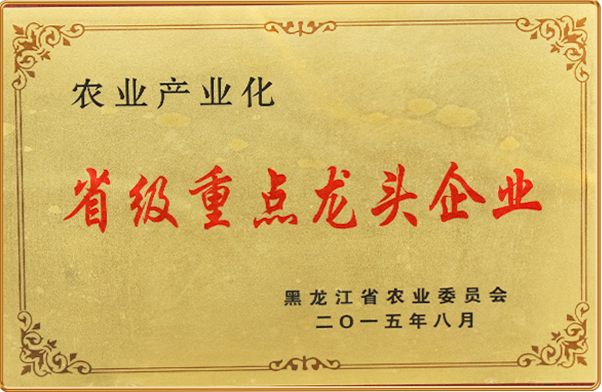 农业产业化
省级重点龙头企业
黑龙江省农业委员会
二〇一五年八月